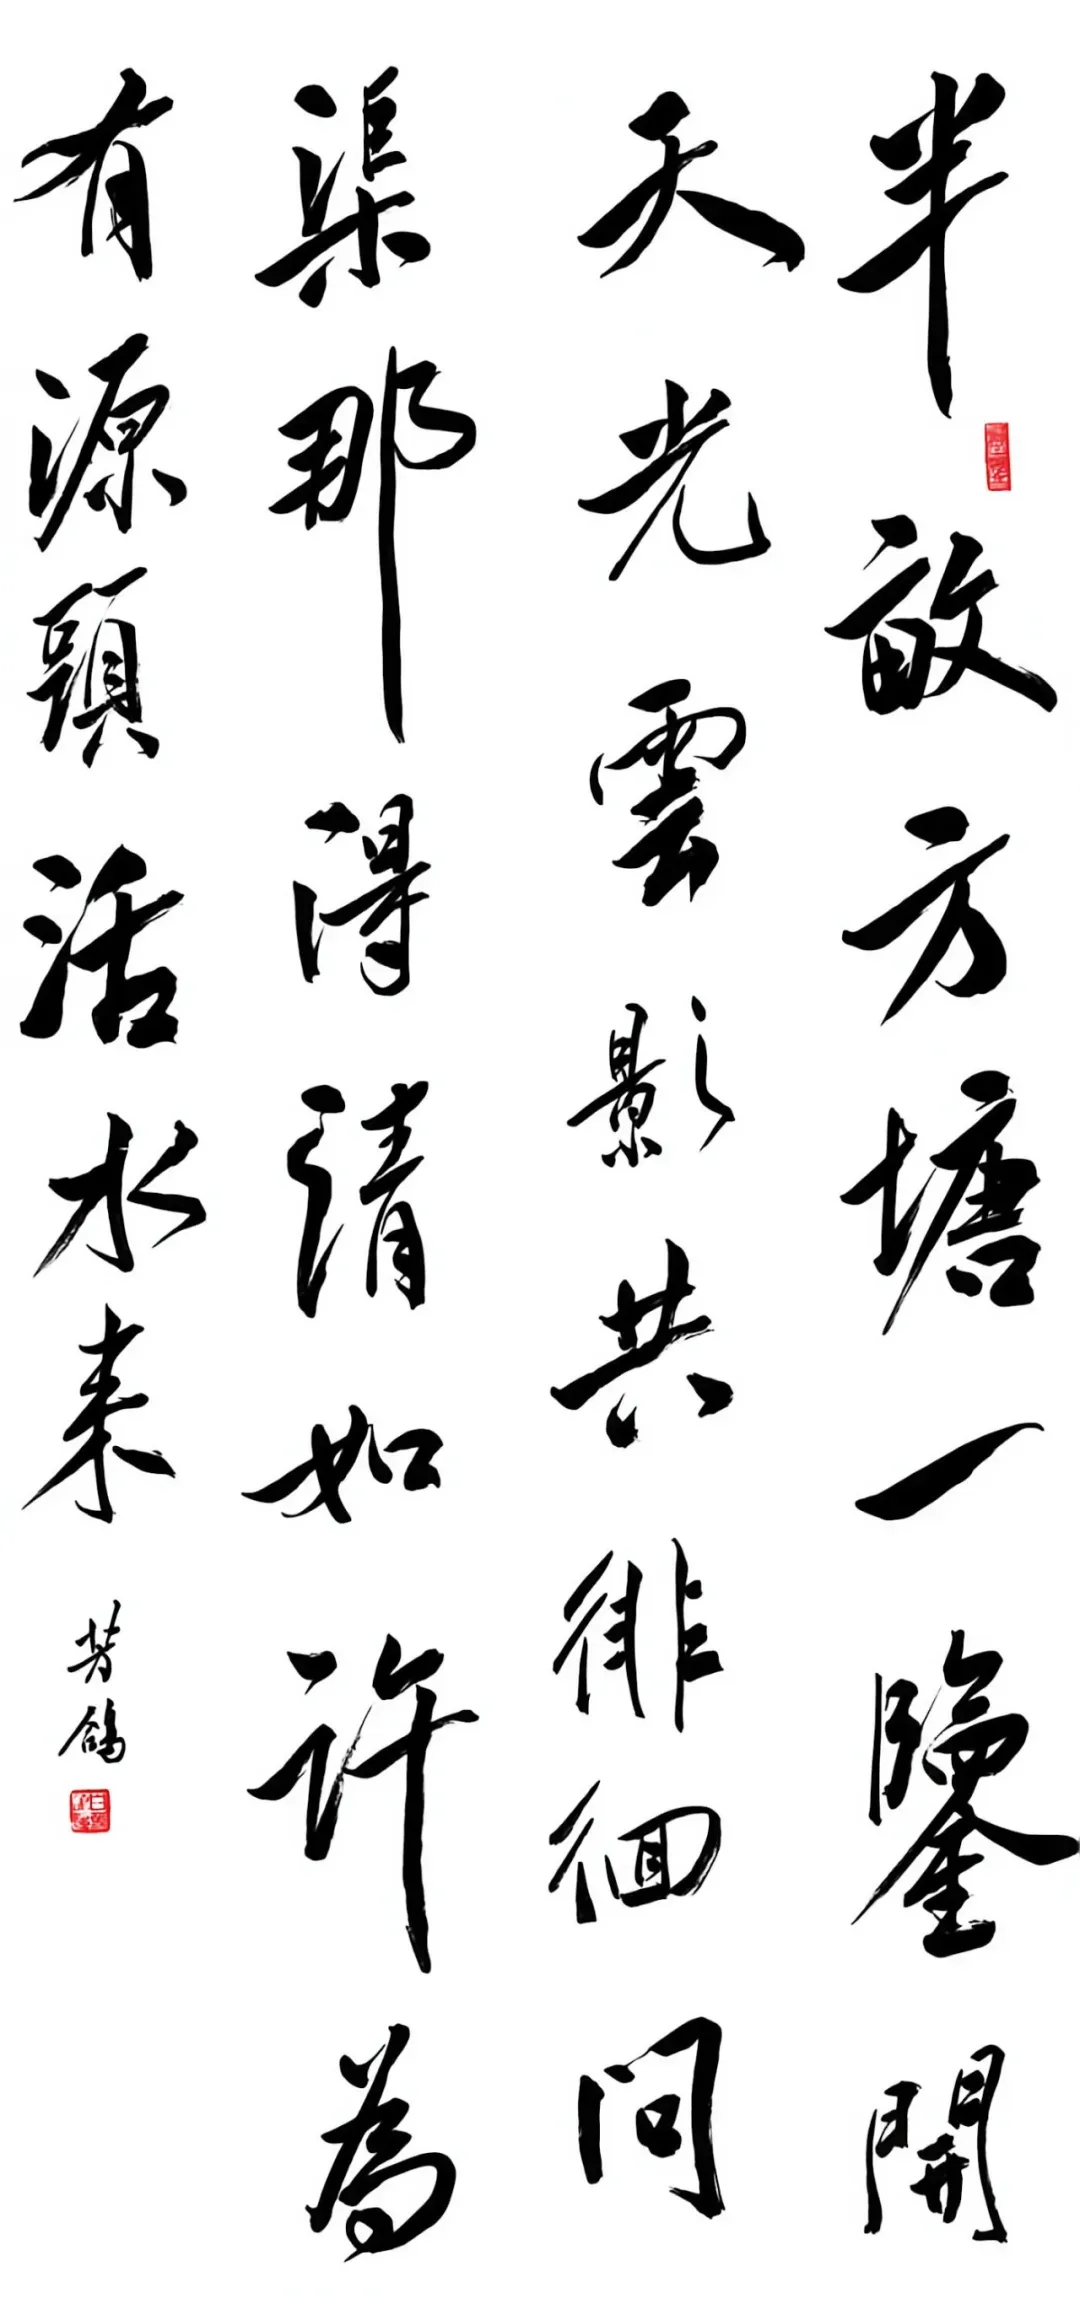 半畝方塘一鑒開
天光雲影共徘徊問
渠那得清如許為
有源頭活水来
芳鴿